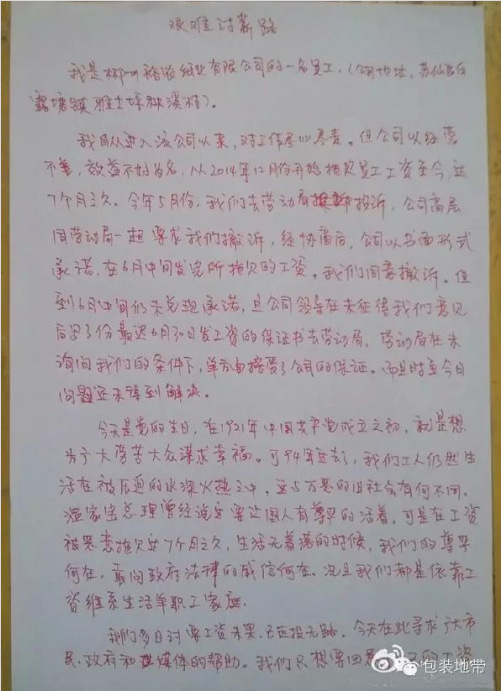 艰难讨薪路
我是郴州裕路纸业有限公司的一名员工，（公司地址，苏仙区白
露塘镇雅士坪秧溪村）。
我自从进入该公司以来，对工作尽心尽责。但公司以经营
不善，效益不好为名，从2014年12月份开始拖欠员工工资至今，达
7个月之久。今年5月份，我们去劳动局投诉，公司高层
同劳动局一起要求我们撤诉，经协商后，公司以书面形式
承诺，在6月中旬发完所拖欠的工资。我们同意撤诉。但
到6月中旬仍未兑现承诺，且公司领导在未征得我们意见
后写了份最迟6月30日发工资的保证书去劳动局，劳动局在未
询问我们的条件下，单方面接受了公司的保证。而且时至今日
问题还未得到解决。
今天是党的生日，在1921年中国共产党成立之初，就是想
为广大劳苦大众谋求幸福。可94年过去了，我们工人仍然生
活在被压迫的水深火热之中，这与万恶的旧社会有何不同。
温家宝总理曾经说过要让国人有尊严的活着，可是在工资
被恶意拖欠达7个月之久，生活无着落的时候，我们的尊严
何在，敢问政府法律的威信何在。况且我们都是依靠工
资维系生活单职工家庭。
我们多日讨要工资未果，已走投无路。今天在此寻求广大市
民、政府和媒体的帮助。我们只想要回的工资
包装地带